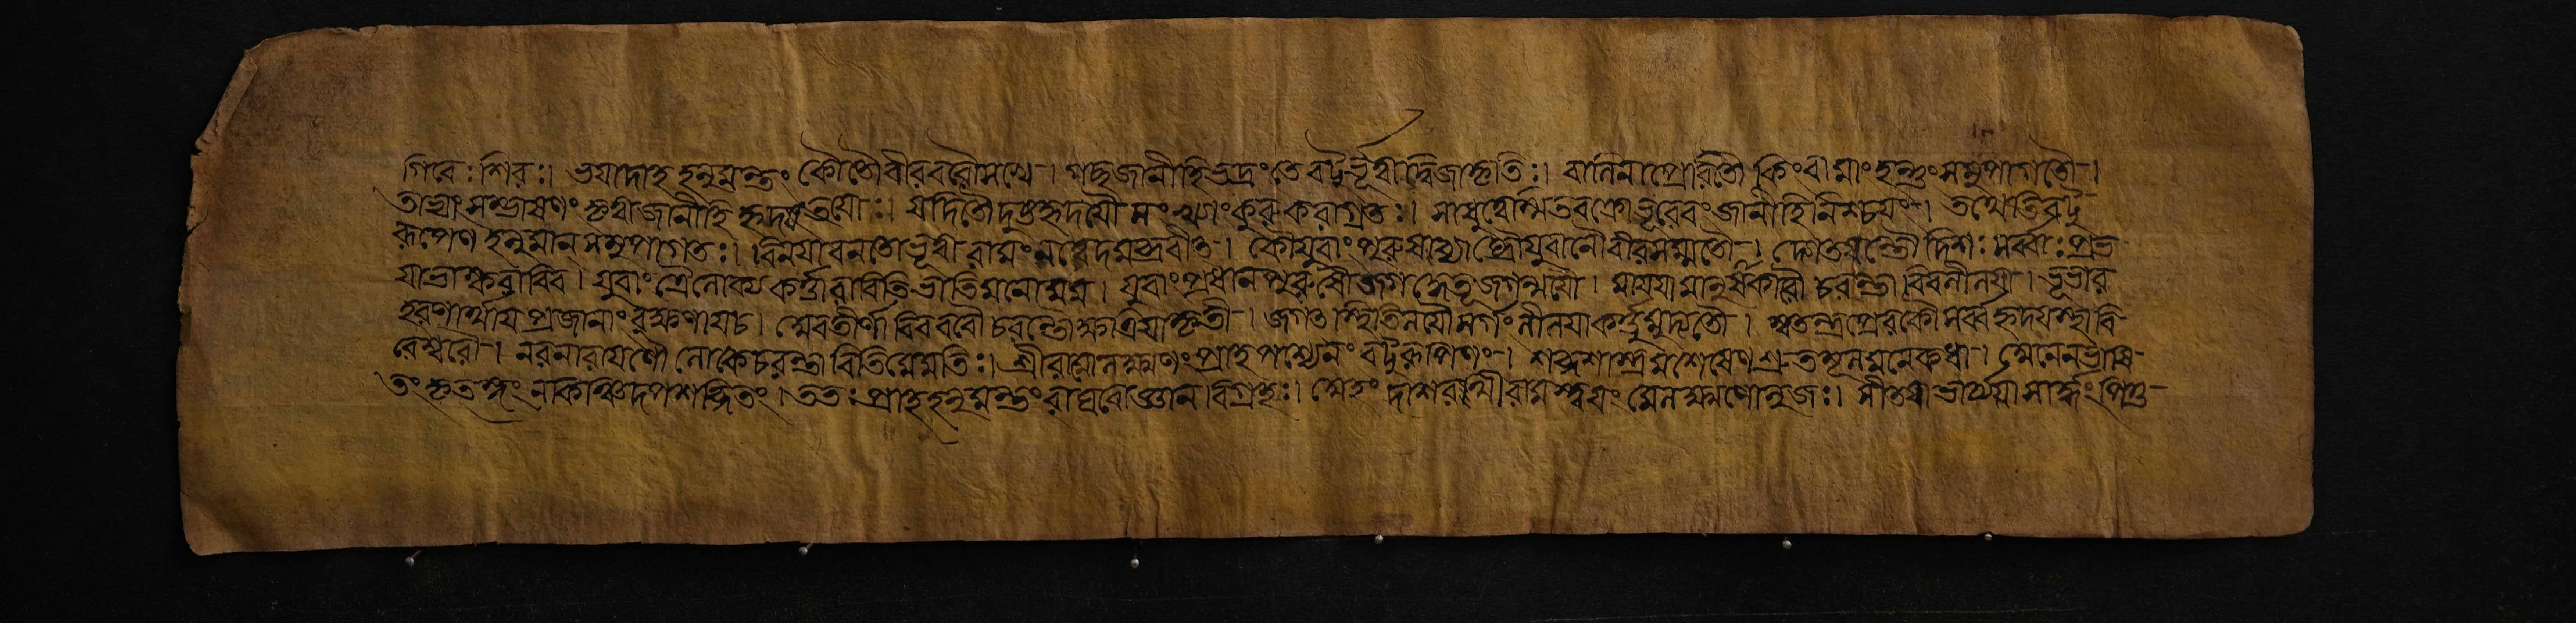 গিরেঃ শিরঃ। ভয়াদাহ হনুমন্তং কৌ তৌ বীরবরৌ সখে। গচ্ছ জানীহি ভদ্রং তে বটুর্ভূত্বা দ্বিজাকৃতিঃ। বালিনা প্রেরিতৌ কিংবা মাং হন্তুং সমুপাগতৌ।
তাভ্যাং সম্ভাষণং কৃত্বা জানীহি হৃদয়ং তয়োঃ। যদি তৌ দুষ্টহৃদয়ৌ সংজ্ঞাং কুরু করাগ্রতঃ। সাধুত্বে স্মিতবক্ত্রো ভূরেবং জানীহি নিশ্চয়ং। তথেতি বটু
রূপেণ হনুমান্ সমুপাগতঃ। বিনয়াবনতো ভূত্বা রামং নত্বেদমব্রবীৎ। কৌ যুবাং পুরুষব্যাঘ্রৌ যুবানৌ বীরসম্মতৌ। দ্যোতয়ন্তৌ দিশঃ সর্ব্বাঃ প্রভ
য়া ভাস্করাবিব। যুবাং ত্রৈলোক্যকর্ত্তারাবিতি ভাতি মনো মম। যুবাং প্রধানপুরুষৌ জগদ্ধেতূ জগন্ময়ৌ। মায়য়া মানুষাকারৌ চরন্তাবিব লীলয়া। ভূভার
হরণার্থায় প্রজানাং রক্ষণায় চ। অবতীর্ণাবিব বরৌ চরন্তৌ ক্ষত্রিয়াকৃতী। জগৎস্থিতিলয়ৌ সর্গং লীলয়া কর্ত্তুমুদ্যতৌ। স্বতন্ত্রৌ প্রেরকৌ সর্ব্বহৃদয়স্থাবি
বেশ্বরৌ। নরনারায়ণৌ লোকে চরন্তাবিতি মে মতিঃ। শ্রীরামো লক্ষ্মণং প্রাহ পশ্যৈনং বটুরূপিণং। শব্দশাস্ত্রমশেষেণ শ্রুতং নূনমনেকধা। অনেন ভাষি
তং কৃৎস্নং ন কিঞ্চিদপশব্দিতং। ততঃ প্রাহ হনুমন্তং রাঘবো জ্ঞানবিগ্রহঃ। অহং দাশরথী রামস্ত্বয়ং মে লক্ষ্মণোনুজঃ। সীতয়া ভার্য্যয়া সার্দ্ধং পিতু